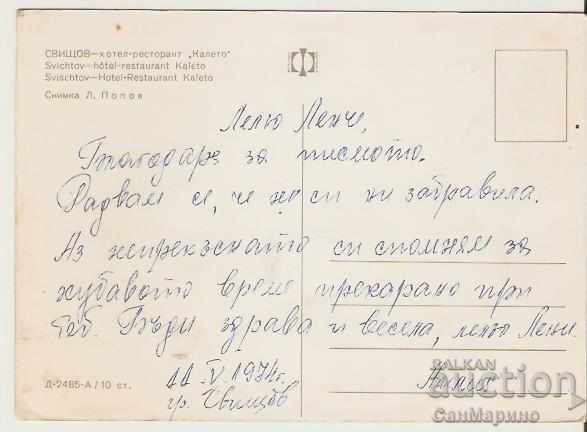 СВИЩОВ—хотел-ресторант „Калето"
Svichtov—hôtel-restaurant Kaléto
Svischtov—Hotel-Restaurant Kaleto
Снимка Л. Попов
Лельо Ленче,
Благодаря за писмото.
Радвам се, че не си ни забравила.
Аз непрекъснато си спомням за
хубавото време прекарано при
теб. Бъди здрава и весела, лельо Лени.
11.V.1974г.
гр. Свищов
Д-2485-А/10 ст.
BALKAN
auction
СанМарино